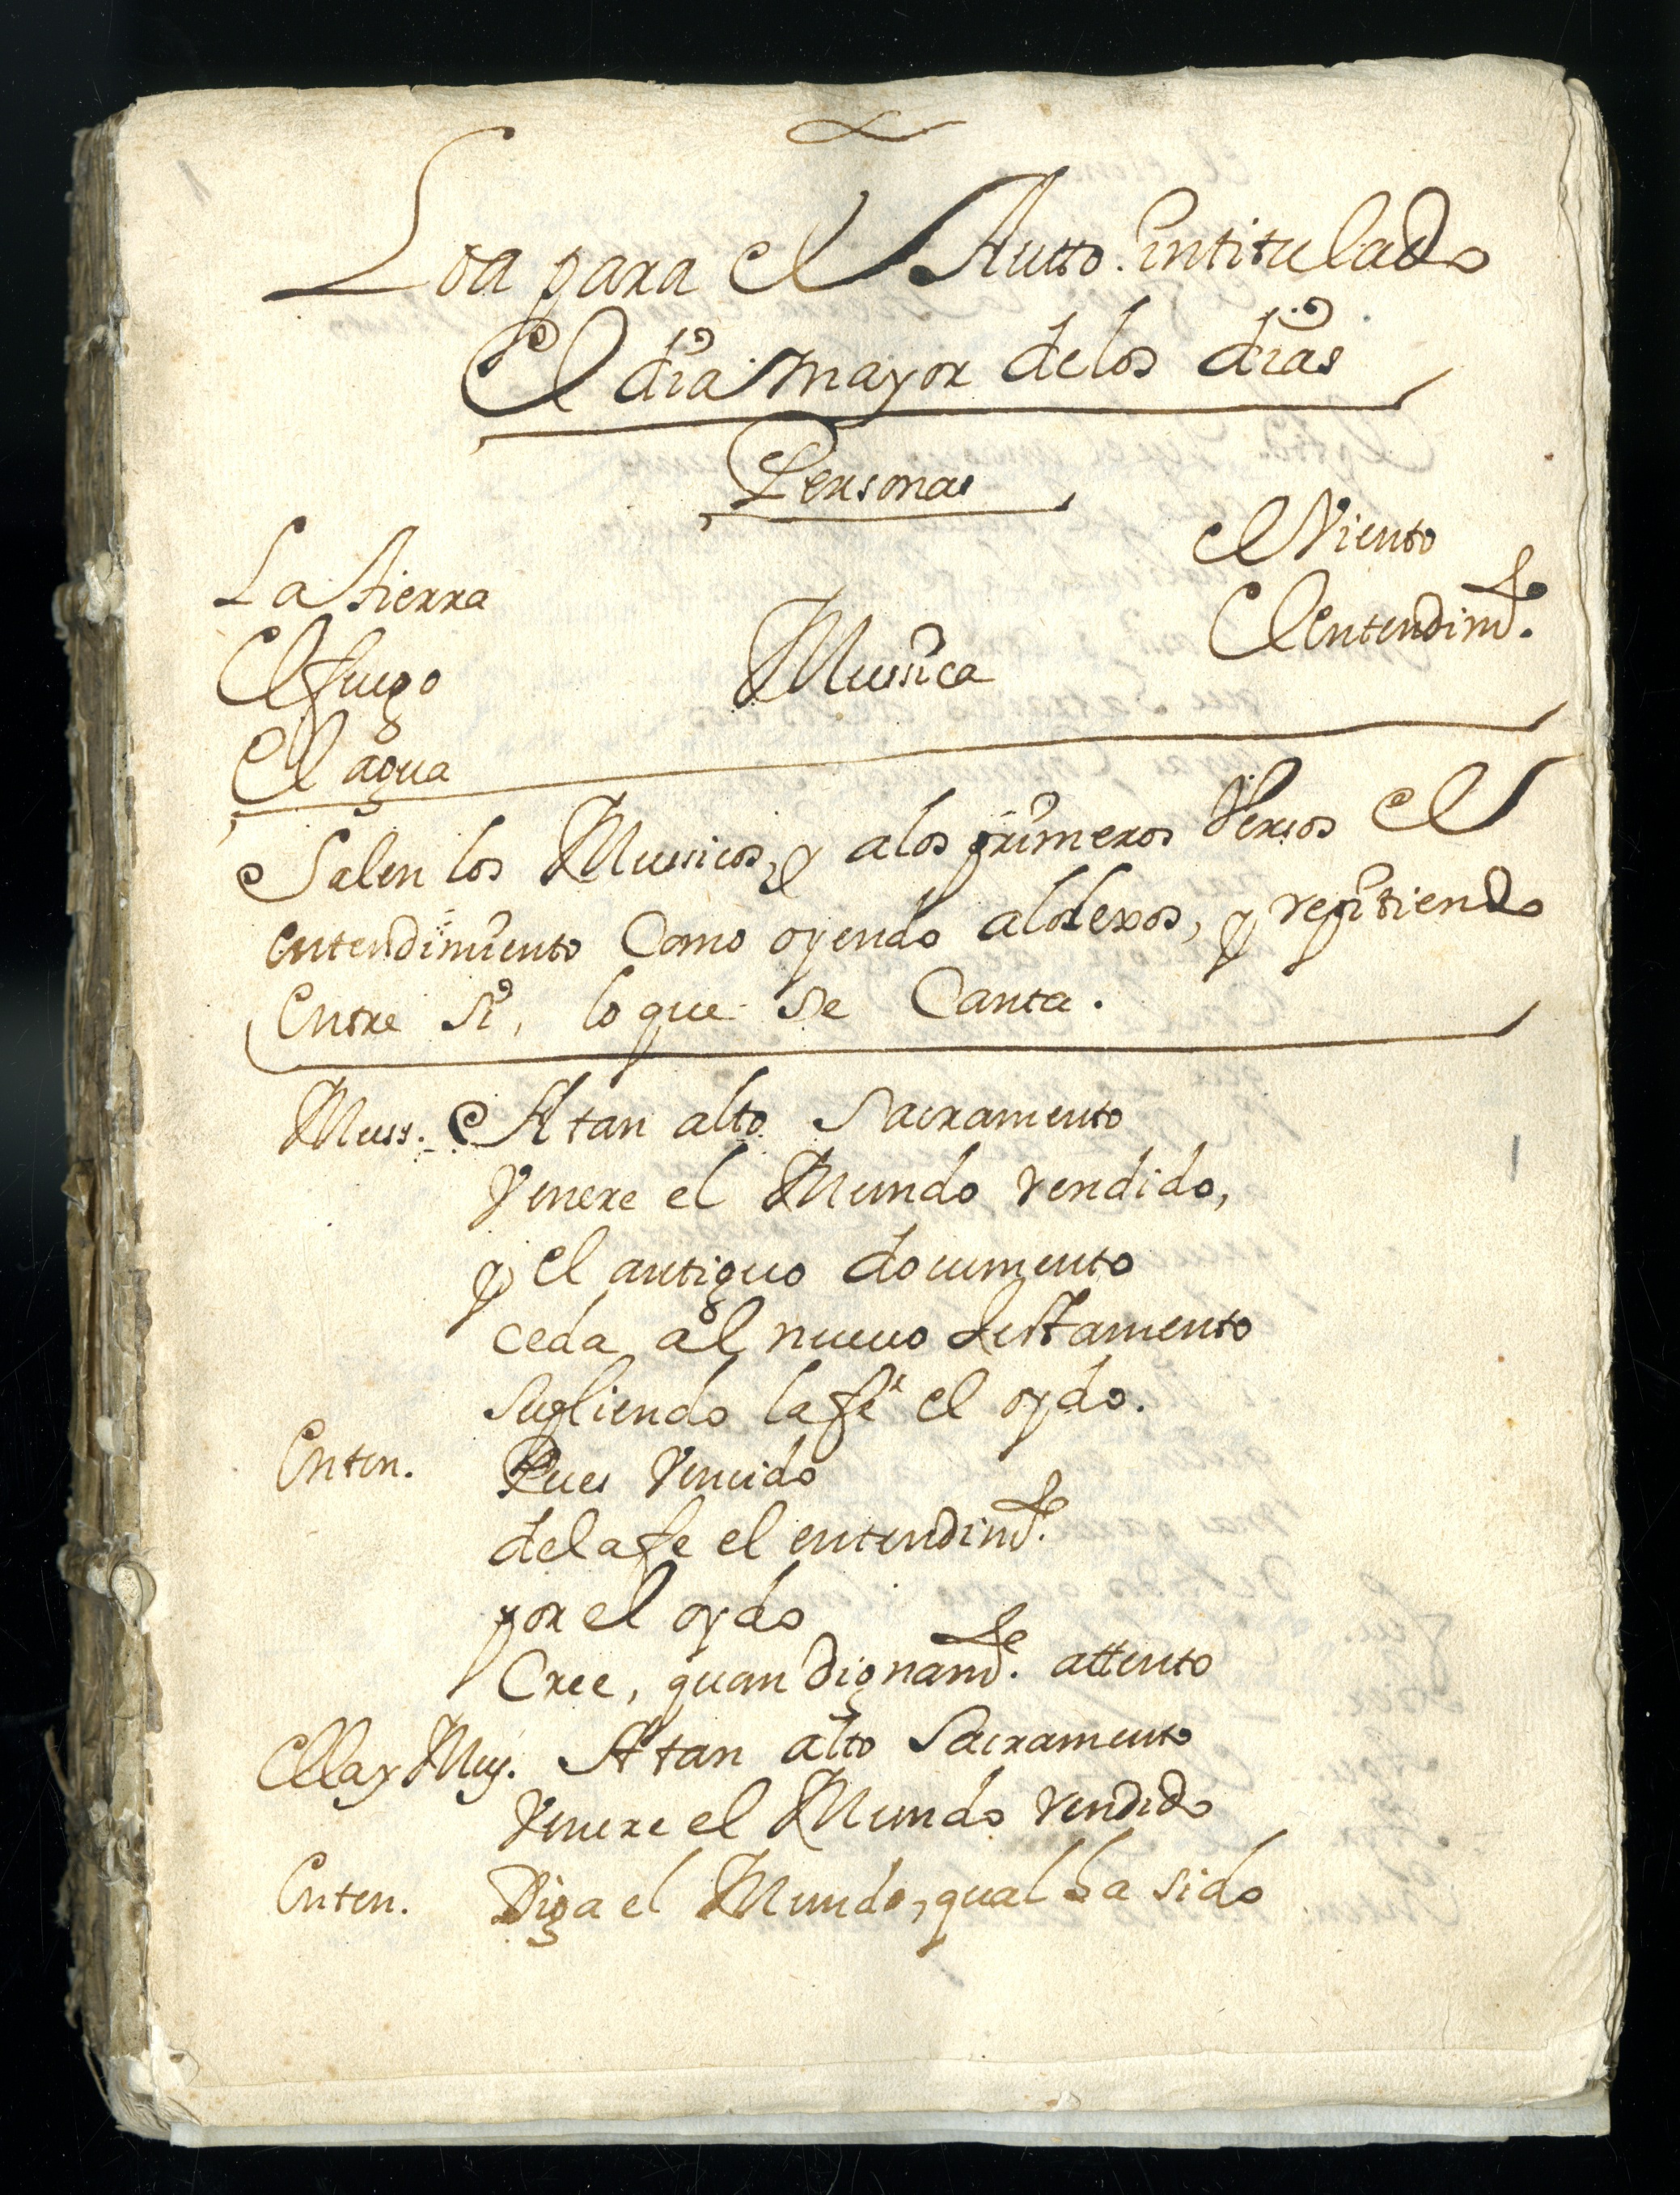 Loa para el Autto. intitulado
El dia mayor delos dias
Personas
La tierra
El fuego
El agua
Mussica
El Viento
El entendimto.
Salen los Mussicos, y alos primeros Versos El
entendimiento Como oyendo alolexos, y repitiendo
Entre si, loque se Canta.
Muss. A tan alto Sacramento
Venere el Mundo rendido,
y el antiguo documento
ceda al nueuo testamento
Supliendo lafe el oydo.
Enten. Pues Vencido
delafe el entendimto.
por el oydo
Cree, quan dignamte. attento
Ella y Mus. A tan alto Sacramento
Venere el Mundo rendido
Enten. Diga el Mundo, qual ha sido